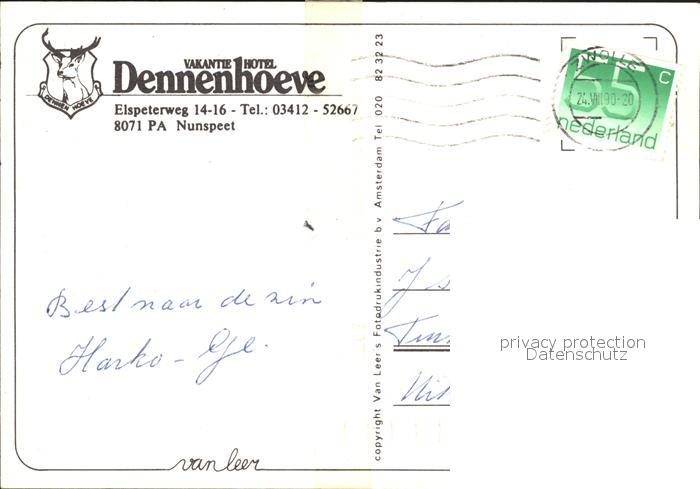 VAKANTIE HOTEL
Dennenhoeve
DENNEN HOEVE
Elspeterweg 14-16 - Tel.: 03412 - 52667
8071 PA Nunspeet
75 C
nederland
24.VIII.90-20
copyright Van Leer's Fotodrukindustrie b v Amsterdam Tel 020 82 32 23
Best naar de zin
Harko - Gé.
privacy protection
Datenschutz
van leer